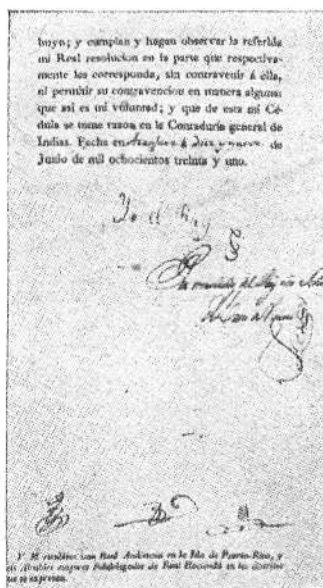 buyo; y cumplan y hagan observar la referida
mi Real resolucion en la parte que respectiva-
mente les corresponda, sin contravenir á ella,
ni permitir su contravencion en manera alguna:
que asi es mi voluntad; y que de esta mi Cé-
dula se tome razon en la Contaduría general de
Indias. Fecha en Aranjuez á diez y nueve de
Junio de mil ochocientos treinta y uno.
Yo el Rey
Por mandado del Rey nro Señor
V. M. establece una Real Audiencia en la Isla de Puerto-Rico, y
Alcaldes mayores Subdelegados de Real Hacienda en los distritos
que se expresan.